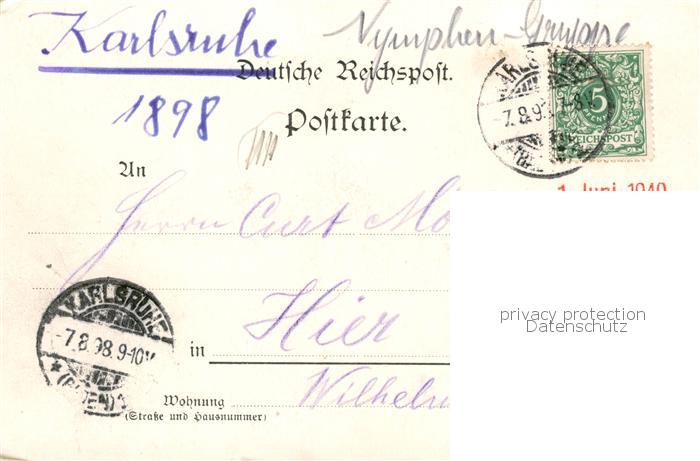 Karlsruhe Nymphen-Gruppe
Deutsche Reichspost.
1898
Postkarte.
5
REICHSPOST
-7.8.9
An
1. Juni 1940
Herrn Curt
KARLSRUHE
-7.8.98.9-10V
(BADEN)
Hier
in
privacy protection
Datenschutz
Wohnung
(Straße und Hausnummer)